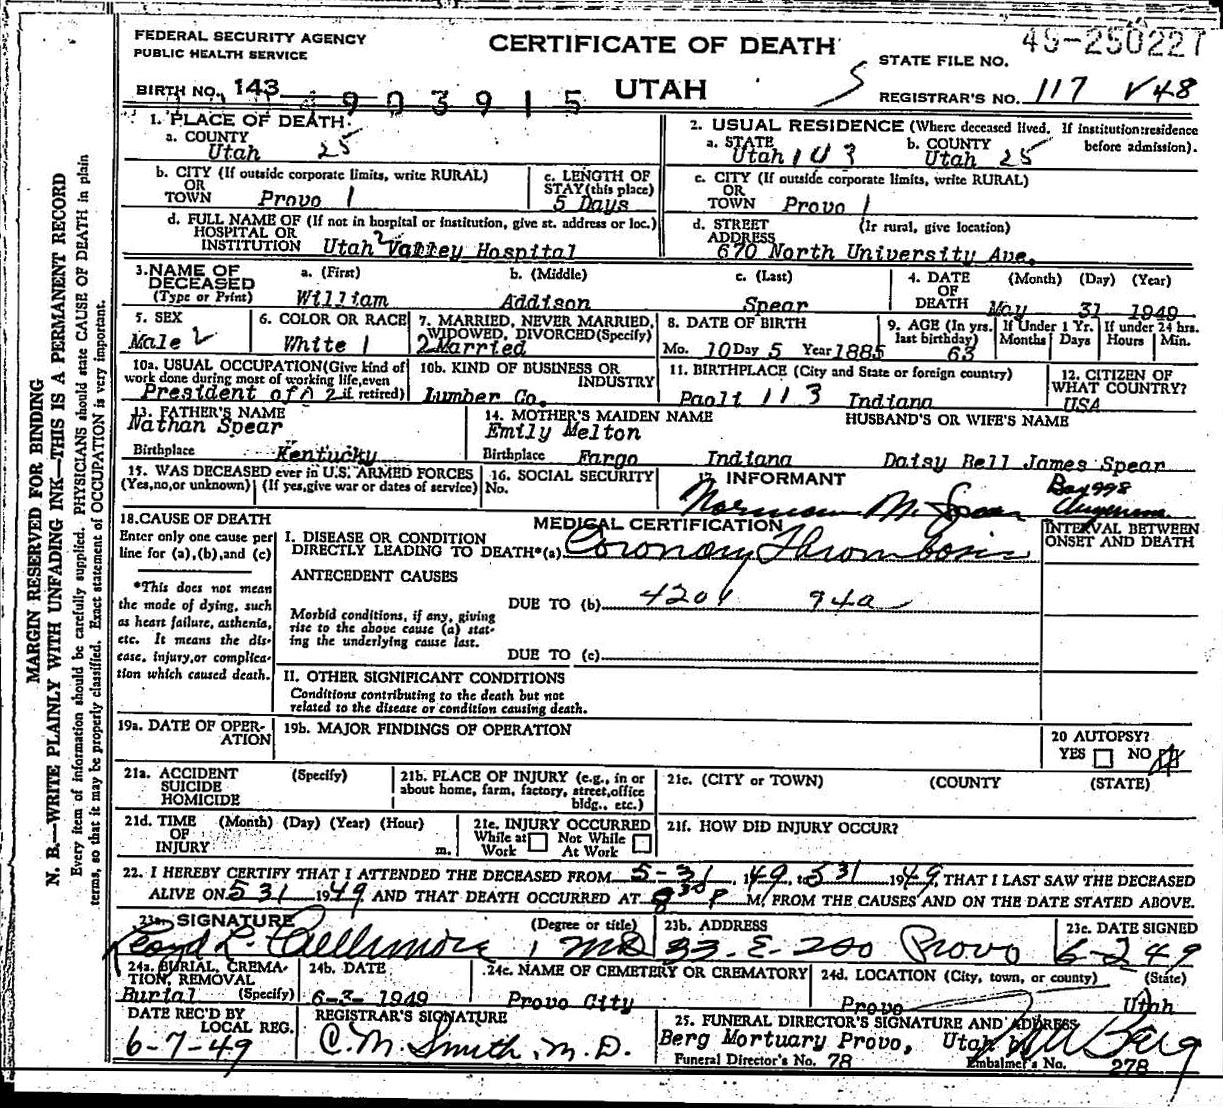 FEDERAL SECURITY AGENCY
PUBLIC HEALTH SERVICE
CERTIFICATE OF DEATH
UTAH
49-250227
STATE FILE NO.
BIRTH NO. 143
4903915
REGISTRAR'S NO. 117 V48
1. PLACE OF DEATH
a. COUNTY
Utah 25
2. USUAL RESIDENCE (Where deceased lived. If institution: residence before admission).
a. STATE b. COUNTY
Utah Utah 25
b. CITY (If outside corporate limits, write RURAL)
OR
TOWN Provo 1
c. LENGTH OF
STAY (this place)
5 Days
c. CITY (If outside corporate limits, write RURAL)
OR
TOWN Provo 1
d. FULL NAME OF (If not in hospital or institution, give st. address or loc.)
HOSPITAL OR
INSTITUTION Utah Valley Hospital
d. STREET (If rural, give location)
ADDRESS
670 North University Ave.
3. NAME OF DECEASED (Type or Print)
a. (First) b. (Middle) c. (Last)
William Addison Spear
4. DATE OF DEATH (Month) (Day) (Year)
May 31 1949
5. SEX
Male 2
6. COLOR OR RACE
White 1
7. MARRIED, NEVER MARRIED,
WIDOWED, DIVORCED (Specify)
2 Married
8. DATE OF BIRTH
Mo. 10 Day 5 Year 1885
9. AGE (In yrs. last birthday)
63
If Under 1 Yr. Months Days
If under 24 hrs. Hours Min.
10a. USUAL OCCUPATION (Give kind of
work done during most of working life, even
if retired)
President of
10b. KIND OF BUSINESS OR
INDUSTRY
Lumber Co.
11. BIRTHPLACE (City and State or foreign country)
Paoli 113 Indiana
12. CITIZEN OF
WHAT COUNTRY?
USA
13. FATHER'S NAME
Nathan Spear
Birthplace Kentucky
14. MOTHER'S MAIDEN NAME
Emily Melton
Birthplace Fargo Indiana
HUSBAND'S OR WIFE'S NAME
Daisy Bell James Spear
15. WAS DECEASED ever in U.S. ARMED FORCES
(Yes, no, or unknown) (If yes, give war or dates of service)
16. SOCIAL SECURITY
No.
17 INFORMANT
Norman M. Spear
Box 998
18. CAUSE OF DEATH
Enter only one cause per
line for (a), (b), and (c)
*This does not mean
the mode of dying, such
as heart failure, asthenia,
etc. It means the dis-
ease, injury, or complica-
tion which caused death.
MEDICAL CERTIFICATION
I. DISEASE OR CONDITION
DIRECTLY LEADING TO DEATH*(a) Coronary Thrombosis
INTERVAL BETWEEN
ONSET AND DEATH
ANTECEDENT CAUSES
DUE TO (b) 4201 94a
Morbid conditions, if any, giving
rise to the above cause (a) stat-
ing the underlying cause last.
DUE TO (c)
II. OTHER SIGNIFICANT CONDITIONS
Conditions contributing to the death but not
related to the disease or condition causing death.
19a. DATE OF OPER-
ATION
19b. MAJOR FINDINGS OF OPERATION
20 AUTOPSY?
YES NO
21a. ACCIDENT (Specify)
SUICIDE
HOMICIDE
21b. PLACE OF INJURY (e.g., in or
about home, farm, factory, street, office
bldg., etc.)
21c. (CITY or TOWN) (COUNTY) (STATE)
21d. TIME (Month) (Day) (Year) (Hour)
OF
INJURY m.
21e. INJURY OCCURRED
While at Work Not While At Work
21f. HOW DID INJURY OCCUR?
22. I HEREBY CERTIFY THAT I ATTENDED THE DECEASED FROM 5-31, 1949, to 5 31 1949, THAT I LAST SAW THE DECEASED
ALIVE ON 5 31 1949 AND THAT DEATH OCCURRED AT 8 30 P M. FROM THE CAUSES AND ON THE DATE STATED ABOVE.
23a. SIGNATURE (Degree or title)
Lloyd L. Cullimore, MD
23b. ADDRESS
33 E-200 Provo
23c. DATE SIGNED
6-2 49
24a. BURIAL, CREMA-
TION, REMOVAL
Burial (Specify)
24b. DATE
6-3-1949
24c. NAME OF CEMETERY OR CREMATORY
Provo City
24d. LOCATION (City, town, or county) (State)
Provo Utah
DATE REC'D BY
LOCAL REG.
6-7-49
REGISTRAR'S SIGNATURE
C. M. Smith, M.D.
25. FUNERAL DIRECTOR'S SIGNATURE AND ADDRESS
Berg Mortuary Provo, Utah
Berg
Funeral Director's No. 78
Embalmer's No. 278
MARGIN RESERVED FOR BINDING
N. B.—WRITE PLAINLY WITH UNFADING INK—THIS IS A PERMANENT RECORD
Every item of information should be carefully supplied. PHYSICIANS should state CAUSE OF DEATH in plain
terms, so that it may be properly classified. Exact statement of OCCUPATION is very important.